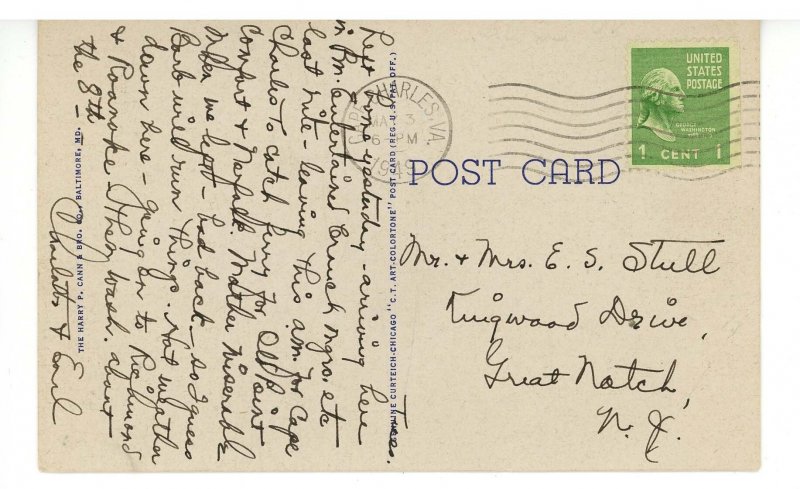 Tues.
Left home yesterday - arriving here
in Pm. entertained Brunck Mgrs. etc
last nite - leaving this a.m. for Cape
Charles to catch ferry for Old Point
Comfort & Norfolk. Mother miserable
when we left - bad back - so I guess
Barb will run things. Hot weather
down here - going on to Richmond
& Roanoke - then Wash. about
the 8th -
Charlotte & Earl
THE HARRY P. CANN & BRO. CO., BALTIMORE, MD.
GENUINE CURTEICH-CHICAGO "C.T. ART-COLORTONE" POST CARD (REG. U.S. PAT. OFF.)
CAPE CHARLES, VA.
3
6 PM
194
UNITED
STATES
POSTAGE
GEORGE
WASHINGTON
1 CENT 1
POST CARD
Mr. & Mrs. E. S. Stull
Kingwood Drive,
Great Notch,
N. J.